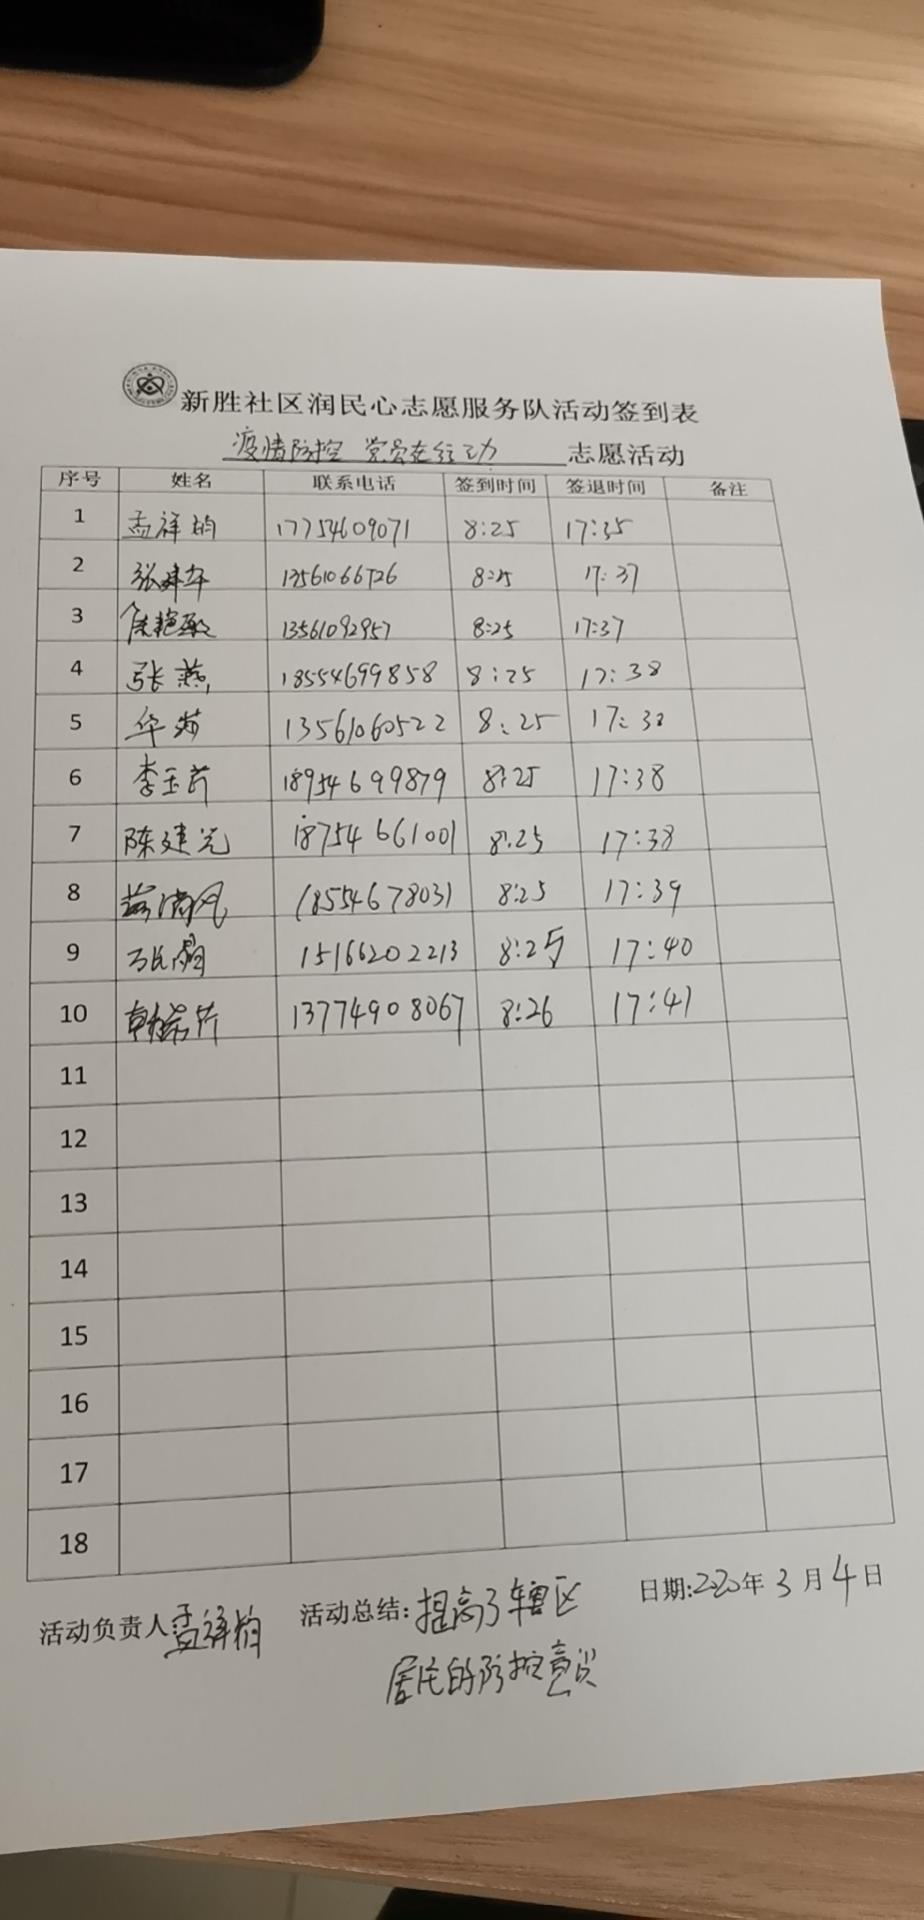 新胜社区润民心志愿服务队活动签到表
疫情防控 党员在行动 志愿活动
序号 姓名 联系电话 签到时间 签退时间 备注
1 孟祥昀 17754609071 8:25 17:35
2 张建华 13561066726 8:25 17:37
3 侯艳敏 13561092957 8:25 17:37
4 张燕 18554699858 8:25 17:38
5 华茹 13561060522 8:25 17:38
6 李玉芹 18954699879 8:25 17:38
7 陈建光 18754661001 8:25 17:38
8 18554678031 8:25 17:39
9 张晶 15166202213 8:25 17:40
10 13774908067 8:26 17:41
11
12
13
14
15
16
17
18
活动负责人 孟祥昀 活动总结: 提高了辖区 日期:2020年3月4日
居民的防控意识